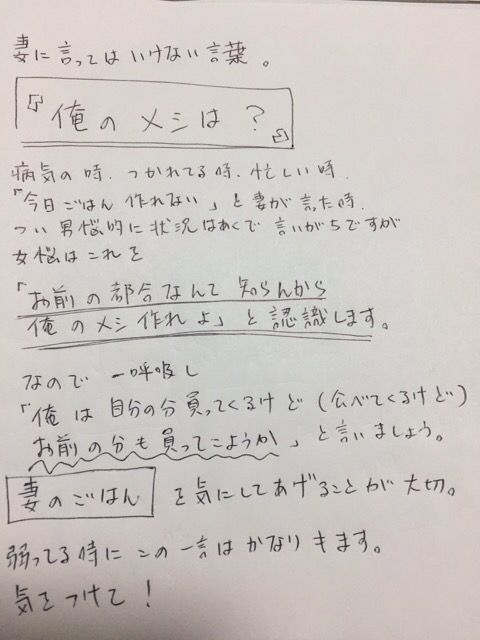 妻に言ってはいけない言葉。
『俺のメシは?』
病気の時、つかれてる時、忙しい時、
「今日ごはん作れない」と妻が言った時、
つい男悩的に状況はあくで言いがちですが
女悩はこれを
「お前の都合なんて知らんから
俺のメシ作れよ」と認識します。
なので一呼吸し
「俺は自分の分買ってくるけど(食べてくるけど)
お前の分も買ってこようか」と言いましょう。
妻のごはんを気にしてあげることが大切。
弱ってる時にこの一言はかなりキます。
気をつけて!